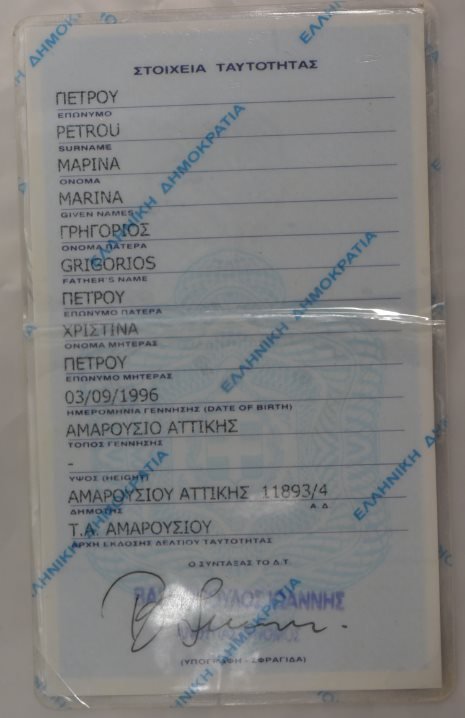 ΣΤΟΙΧΕΙΑ ΤΑΥΤΟΤΗΤΑΣ
ΠΕΤΡΟΥ
ΕΠΩΝΥΜΟ
PETROU
SURNAME
ΜΑΡΙΝΑ
ΟΝΟΜΑ
MARINA
GIVEN NAMES
ΓΡΗΓΟΡΙΟΣ
ΟΝΟΜΑ ΠΑΤΕΡΑ
GRIGORIOS
FATHER'S NAME
ΠΕΤΡΟΥ
ΕΠΩΝΥΜΟ ΠΑΤΕΡΑ
ΧΡΙΣΤΙΝΑ
ΟΝΟΜΑ ΜΗΤΕΡΑΣ
ΠΕΤΡΟΥ
ΕΠΩΝΥΜΟ ΜΗΤΕΡΑΣ
03/09/1996
ΗΜΕΡΟΜΗΝΙΑ ΓΕΝΝΗΣΗΣ (DATE OF BIRTH)
ΑΜΑΡΟΥΣΙΟ ΑΤΤΙΚΗΣ
ΤΟΠΟΣ ΓΕΝΝΗΣΗΣ
-
ΥΨΟΣ (HEIGHT)
ΑΜΑΡΟΥΣΙΟΥ ΑΤΤΙΚΗΣ 11893/4
ΔΗΜΟΤΗΣ Α.Δ.
Τ.Α. ΑΜΑΡΟΥΣΙΟΥ
ΑΡΧΗ ΕΚΔΟΣΗΣ ΔΕΛΤΙΟΥ ΤΑΥΤΟΤΗΤΑΣ
Ο ΣΥΝΤΑΞΑΣ ΤΟ Δ.Τ.
ΙΩΑΝΝΗΣ
(ΥΠΟΓΡΑΦΗ - ΣΦΡΑΓΙΔΑ)
ΕΛΛΗΝΙΚΗ ΔΗΜΟΚΡΑΤΙΑ
ΕΛΛΗΝΙΚΗ ΔΗΜΟΚΡΑΤΙΑ
ΕΛΛΗΝΙΚΗ ΔΗΜΟΚΡΑΤΙΑ